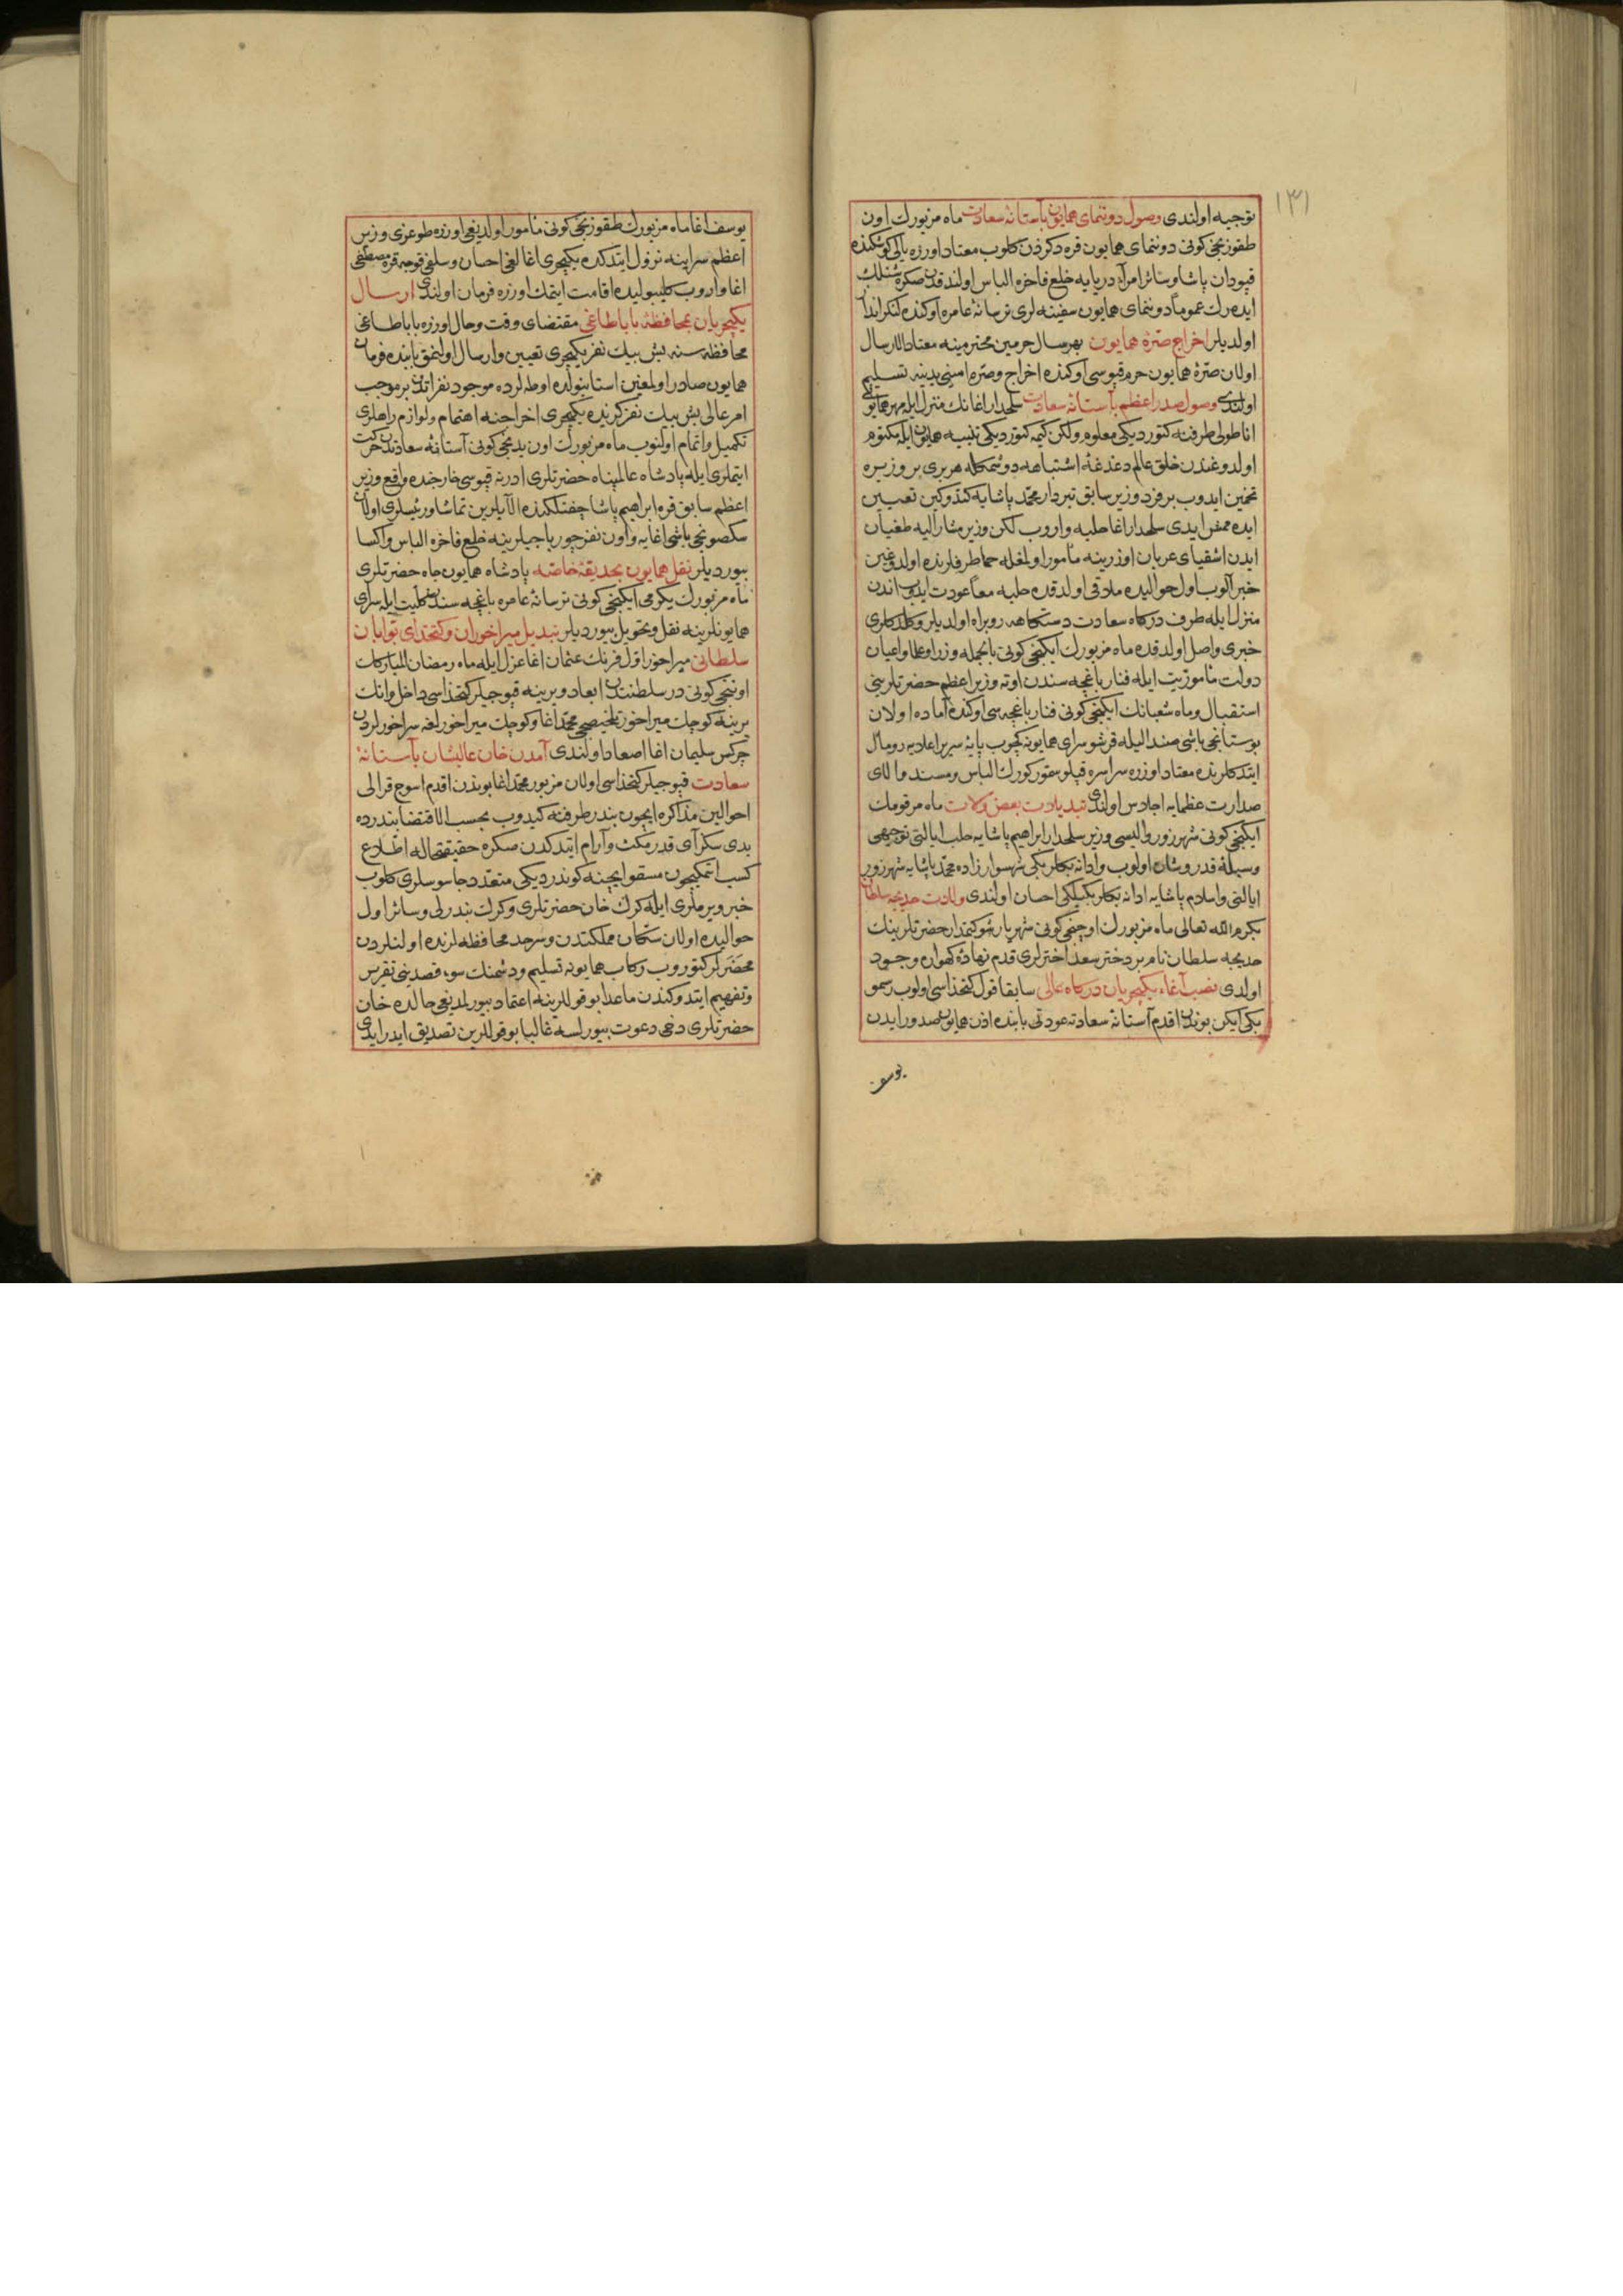 ١٣١
توجيه اولندى وصول دوننماى همايون بآستانۀ سعادت ماه مزبورك اون
طقوزنجى كونى دونماى همايون قره دكزدن كلوب معتاد اوزره يالى كوشكنده
قپودان پاشا وسائر امرآء دريايه خلع فاخره الباس اولندقدن صكره شنلك
ايدەرك عموما دونماى همايون سفينه لرى ترسانۀ عامره اوكنده لنكرانداز
اولديلر اخراج صرّۀ همايون بهرسال حرمين محترمينه معتاد الارسال
اولان صرّۀ همايون حرم قپوسى اوكنده اخراج وصرّه امينى يدينه تسليم
اولندى وصول صدر اعظم بآستانۀ سعادت سلحدار اغانك منزل ايله مهر همايونى
اناطولى طرفنه كتورديكى معلوم ولكن كيمه كتورديكى تنبيه همايون ايله مكتوم
اولدوغندن خلق عالم دغدغۀ اشتباهه دوشمكله هربرى بر وزيره
تخمين ايدوب بر فرد وزير سابق تبردار محمد پاشايه كتدوكين تعيين
ايده ممش ايدى سلحدار اغا حلبه واروب لكن وزير مشار اليه طغيان
ايدن اشقياى عربان اوزرينه مأمور اولمغله حما طرفلرنده اولدوغين
خبر آلوب اول حواليده ملاقى اولدقده حلبه معاً عودت ايدوب اندن
منزل ايله طرف دركاه سعادت دستكاهه روبراه اولديلر وكلدكلرى
خبرى واصل اولدقده ماه مزبورك ايكنجى كونى بالجمله وزرا وعلما واعيان
دولت مأموريت ايله فنار باغچه سندن اوته وزير اعظم حضرتلرينى
استقبال وماه شعبانك ايكنجى كونى فنار باغچه سى اوكنده آماده اولان
بوستانجى باشى صندالیله قرشو سراى همايونه كچوب پايۀ سرير اعلايه رومال
ايتدكلرنده معتاد اوزره سراسره قپلو سمور كورك الباس ومسند والاى
صدارت عظمايه اجلاس اولندى تبديلات بعض ولات ماه مرقومك
ايكنجى كونى شهرزور واليسى وزير سلحدار ابراهيم پاشايه حلب ايالتى توجيهى
وسيلۀ قدر وشان اولوب وادانه بكلربكى شهسوار زاده محمد پاشايه شهرزور
ايالتى واسلام پاشايه ادانه بكلربكيلكى احسان اولندى ولادت خديجه سلطان
بكرم الله تعالى ماه مزبورك اوچنجى كونى شهريار شوكتمدار حضرتلرينك
خديجه سلطان نام بر دختر سعد اخترلرى قدم نهادۀ كهوارۀ وجود
اولدى نصب آغاء يكيچريان دركاه عالى سابقا قول كتخداسى اولوب رسمو
بكى ايكن بوندن اقدم آستانۀ سعادته عودتى بابنده اذن همايون صدور ايدن
يوسف
يوسف اغا ماه مزبورك طقوزنجى كونى مأمور اولديغى اوزره طوغرى وزير
اعظم سراينه نزول ايتدكده يكيچرى اغالغى احسان وسلفى قوجه قره مصطفى
اغا واروب كليبوليده اقامت ايتمك اوزره فرمان اولندى ارسال
يكيچريان بمحافظۀ باباطاغى مقتضاى وقت وحال اوزره باباطاغى
محافظه سنه بش بيك نفر يكيچرى تعيين وارسال اولنمق بابنده فرمان
همايون صادر اولمغين استانبولده اوطه لرده موجود نفراتدن بر موجب
امر عالى بش بيك نفر كزيده يكيچرى اخراجنه اهتمام ولوازم راهلرى
تكميل واتمام اولنوب ماه مزبورك اون يدنجى كونى آستانۀ سعادتدن حركت
ايتملرى ايله پادشاه عالمپناه حضرتلرى ادرنه قپوسى خارجنده واقع وزير
اعظم سابق قره ابراهيم پاشا چفتلكنده آلايلرين تماشا ورئيسلرى اولان
سكصونجى باشى اغايه واون نفر چورباجيلرينه خلع فاخره الباس واكسا
بيورديلر نقل همايون بحديقۀ خاصّه پادشاه همايون جاه حضرتلرى
ماه مزبورك يكرمى ايكنجى كونى ترسانۀ عامره باغچه سندن كليت ايله سراى
همايونلرينه نقل وتحويل بيورديلر تبديل ميراخوران وكتخداى بوابان
سلطانى ميراخور اوّل فرنك عثمان اغا عزل ايله ماه رمضان المباركك
اوننجى كونى در سلطنتدن ابعاد ويرينه قپوجيلر كتخداسى داخل وانك
يرينه كوچك ميراخور تلخيصجى محمد اغا وكوچك ميراخورلغه سراخورلردن
چركس سليمان اغا اصعاد اولندى آمدن خان عاليشان بآستانۀ
سعادت قپوجيلر كتخداسى اولان مزبور محمد اغا بوندن اقدم اسوج قرالى
احوالين مذاكره ايچون بندر طرفنه كيدوب بحسب الاقتضا بندرده
يدى سكز آى قدر مكث وآرام ايتدكدن صكره حقيقتحاله اطلاع
كسب ايتمكيچون مسقو ايچنه كوندرديكى متعدد جاسوسلرى كلوب
خبر ويرملرى ايله كرك خان حضرتلرى وكرك بندرلى وسائر اول
حواليده اولان سكان مملكتدن وسرحد محافظه لرنده اولنلردن
محضرلر كتوروب ركاب همايونه تسليم ودشمنك سوء قصدينى تقرير
وتفهيم ايتدوكندن ماعدا بو قوللرينه اعتماد بيورلمديغى حالده خان
حضرتلرى دخى دعوت بيورلسه غالبا بو قوللرين تصديق ايدر ايدى